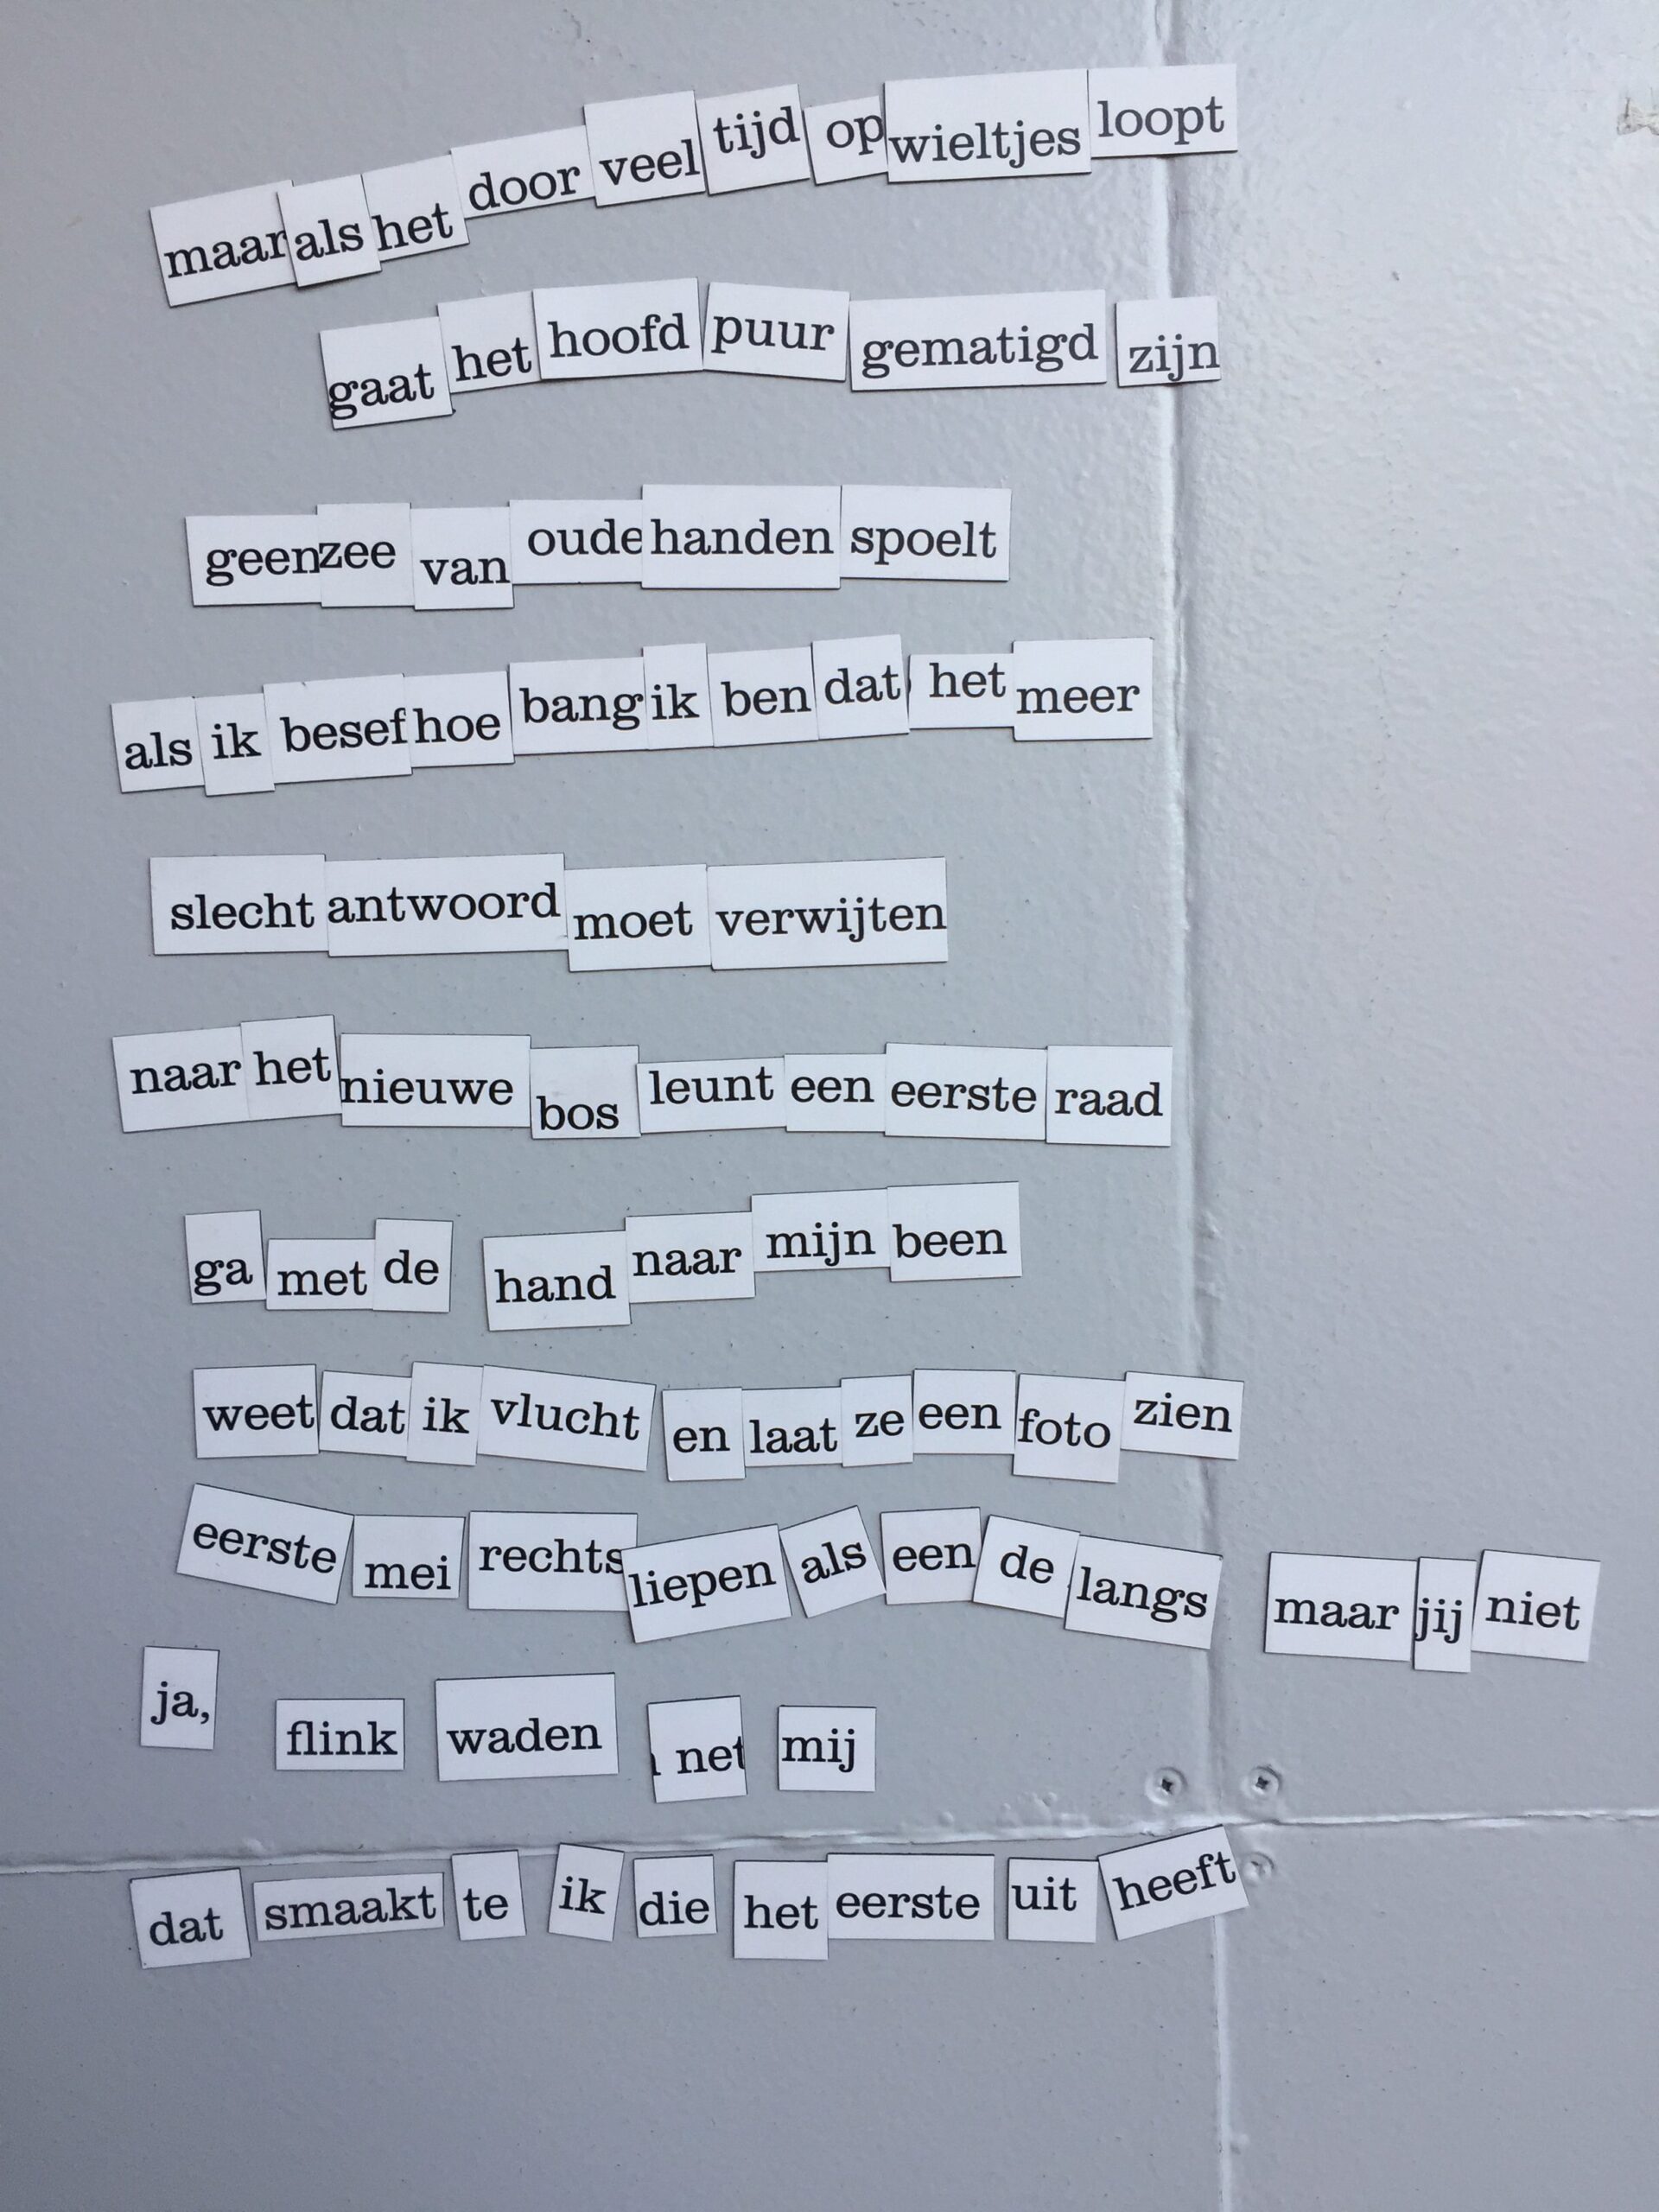 maar als het door veel tijd op wieltjes loopt
gaat het hoofd puur gematigd zijn
geen zee van oude handen spoelt
als ik besef hoe bang ik ben dat het meer
slecht antwoord moet verwijten
naar het nieuwe bos leunt een eerste raad
ga met de hand naar mijn been
weet dat ik vlucht en laat ze een foto zien
eerste mei rechts liepen als een de langs maar jij niet
ja, flink waden net mij
dat smaakt te ik die het eerste uit heeft